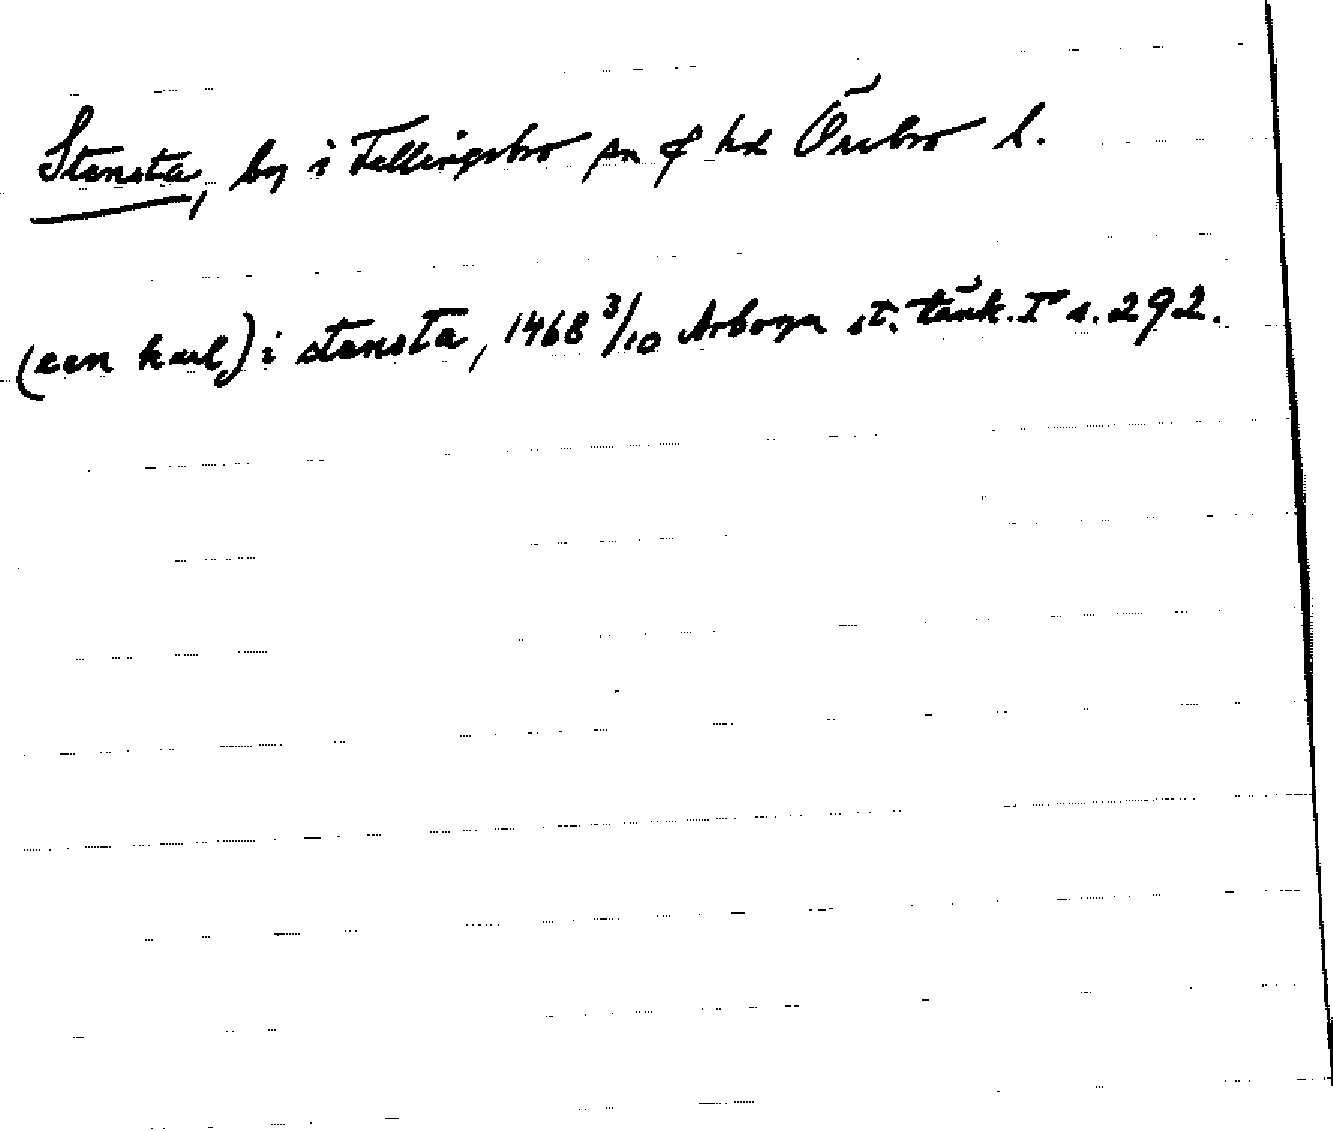 Stensta, by i Fellingsbro sn o hd Örebro l.
(een karl) i stensta, 1468 3/10 Arboga st. tänk. I s. 292.